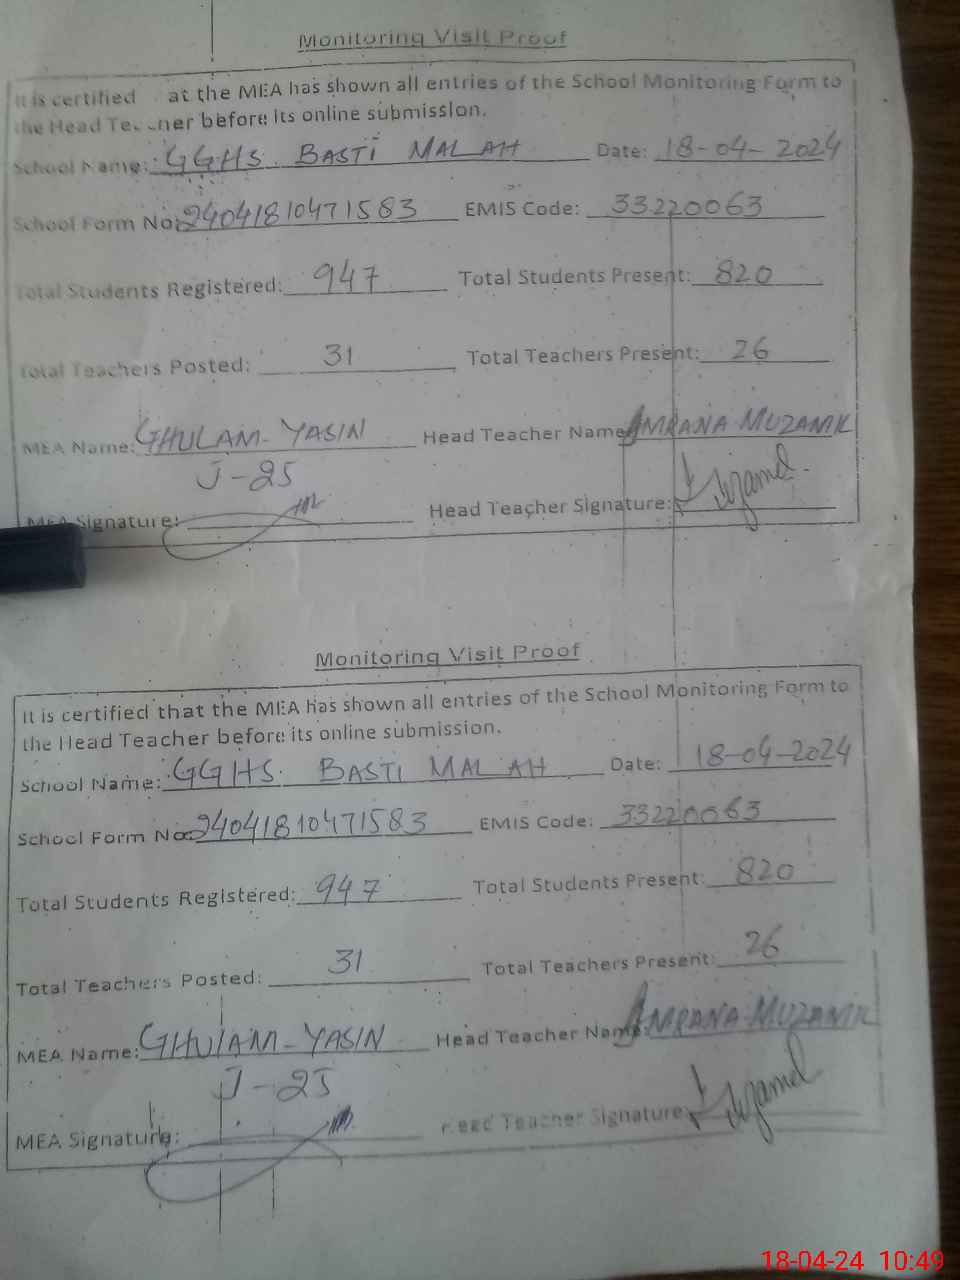 Monitoring Visit Proof
It is certified at the MEA has shown all entries of the School Monitoring Form to
the Head Teacher before its online submission.
School Name: GGHS. BASTI MALAH Date: 18-04-2024
School Form No: 24041810471583 EMIS Code: 33220063
Total Students Registered: 947 Total Students Present: 820
Total Teachers Posted: 31 Total Teachers Present: 26
MEA Name: GHULAM-YASIN Head Teacher Name: AMRANA MUZAMIL
J-25
MEA Signature: Head Teacher Signature:
Monitoring Visit Proof
It is certified that the MEA has shown all entries of the School Monitoring Form to
the Head Teacher before its online submission.
School Name: GGHS. BASTI MALAH Date: 18-04-2024
School Form No: 24041810471583 EMIS Code: 33220063
Total Students Registered: 947 Total Students Present: 820
Total Teachers Posted: 31 Total Teachers Present: 26
MEA Name: GHULAM-YASIN Head Teacher Name: AMRANA MUZAMIL
J-25
MEA Signature: Head Teacher Signature:
18-04-24 10:49